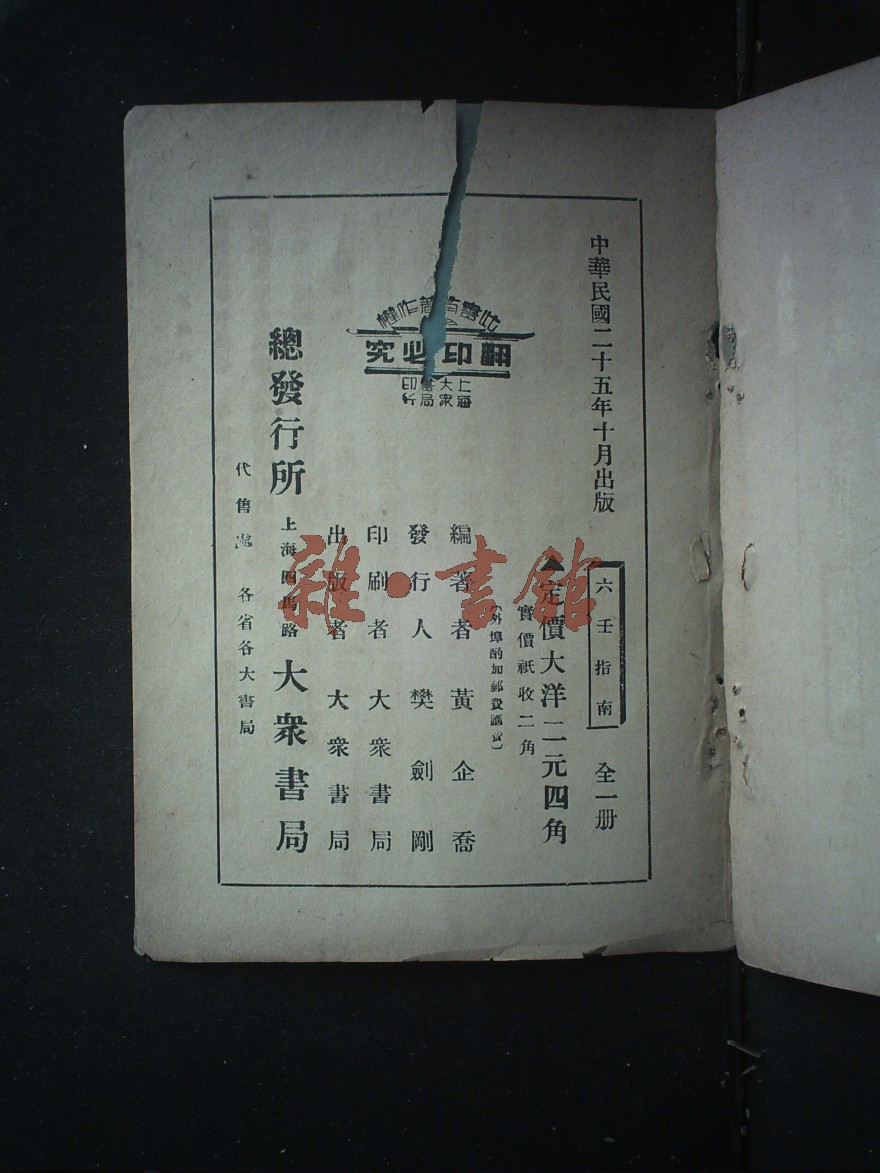 中華民國二十五年十月出版
六壬指南
全一册
定價大洋二元四角
實價祇收二角
(外埠酌加郵費匯費)
編著者黃企喬
發行人樊劍剛
印刷者大衆書局
出版者大衆書局
此書有著作權
翻印必究
上海
大衆
書局
印行
總發行所
上海四馬路
大衆書局
代售處
各省各大書局
雜·書館